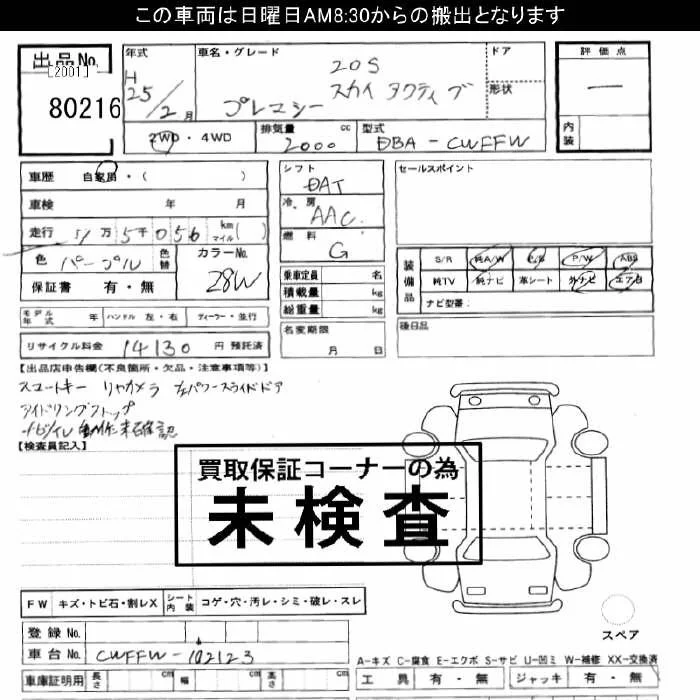 この車両は日曜日AM8:30からの搬出となります
出品No.
[2001]
80216
年式
H
25/2月
車名・グレード
20S
プレマシー スカイアクティブ
ドア
形状
評価点
ー
内装
2WD・4WD
排気量 2000 cc
型式 DBA-CWFFW
車歴 自家用・( )
車検 年 月
走行 万5千056 km マイル( )
色 パープル
色替
カラーNo.
28W
保証書 有・無
モデル年式 年 ハンドル 左・右 ディーラー・並行
リサイクル料金 14130 円 預託済
シフト
DAT
冷房
AAC
燃料
G
乗車定員 名
積載量 kg
総重量 kg
名変期限
月 日
セールスポイント
装備品
S/R 純A/W P/S P/W ABS
純TV 純ナビ 革シート 外ナビ エアB
ナビ型番:
後日品
【出品店申告欄(不良箇所・欠品・注意事項等)】
スマートキー リヤカメラ 左パワースライドドア
アイドリングストップ
ナビ/TV 動作未確認
【検査員記入】
買取保証コーナーの為
未検査
FW キズ・トビ石・割レX シート内装 コゲ・穴・汚レ・シミ・破レ・スレ
登録No.
車台No. CWFFW-102123
車庫証明用 長さ cm 幅 cm 高さ cm
スペア
A-キズ C-腐食 E-エクボ S-サビ U-凹ミ W-補修 XX-交換済
工具 有・無 ジャッキ 有・無